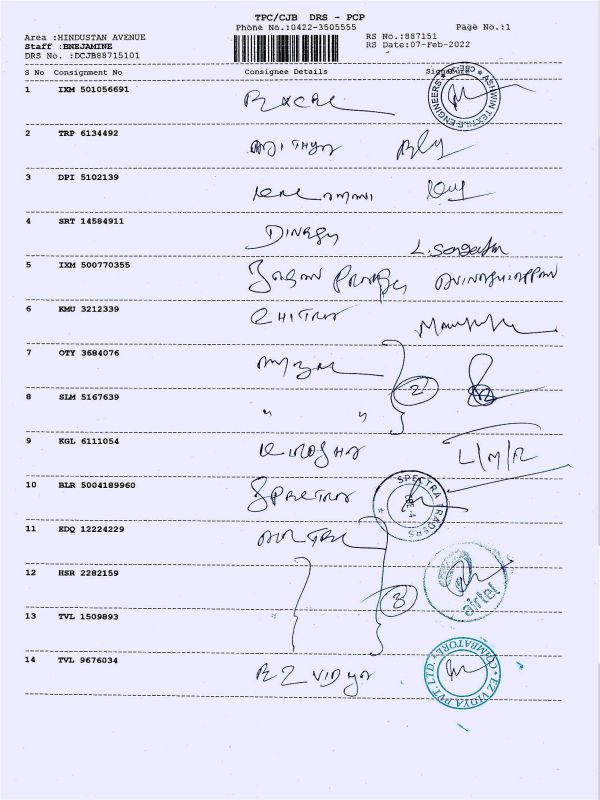 TPC/CJB DRS - PCP
Phone No.:0422-3505555
Page No.:1
Area :HINDUSTAN AVENUE
Staff :BNEJAMINE
DRS No. :DCJB88715101
RS No.:887151
RS Date:07-Feb-2022
S No Consignment No Consignee Details Signature
1 IXM 501056691
ASHWIN TEXTILE ENGINEERS * CBE-30 *
2 TRP 6134492
3 DPI 5102139
4 SRT 14584911 DINESH
5 IXM 500770355
6 KMU 3212339 CHITRA
7 OTY 3684076
8 SLM 5167639 " " 2
9 KGL 6111054 L/M/R
10 BLR 5004189960 SPECTRA
SPECTRA TRADERS CBE-4
11 EDQ 12224229 AIRTEL
12 HSR 2282159 3
airtel
13 TVL 1509893
14 TVL 9676034 EZ VIDYA
* EZ VIDYA PVT. LTD. * COIMBATORE